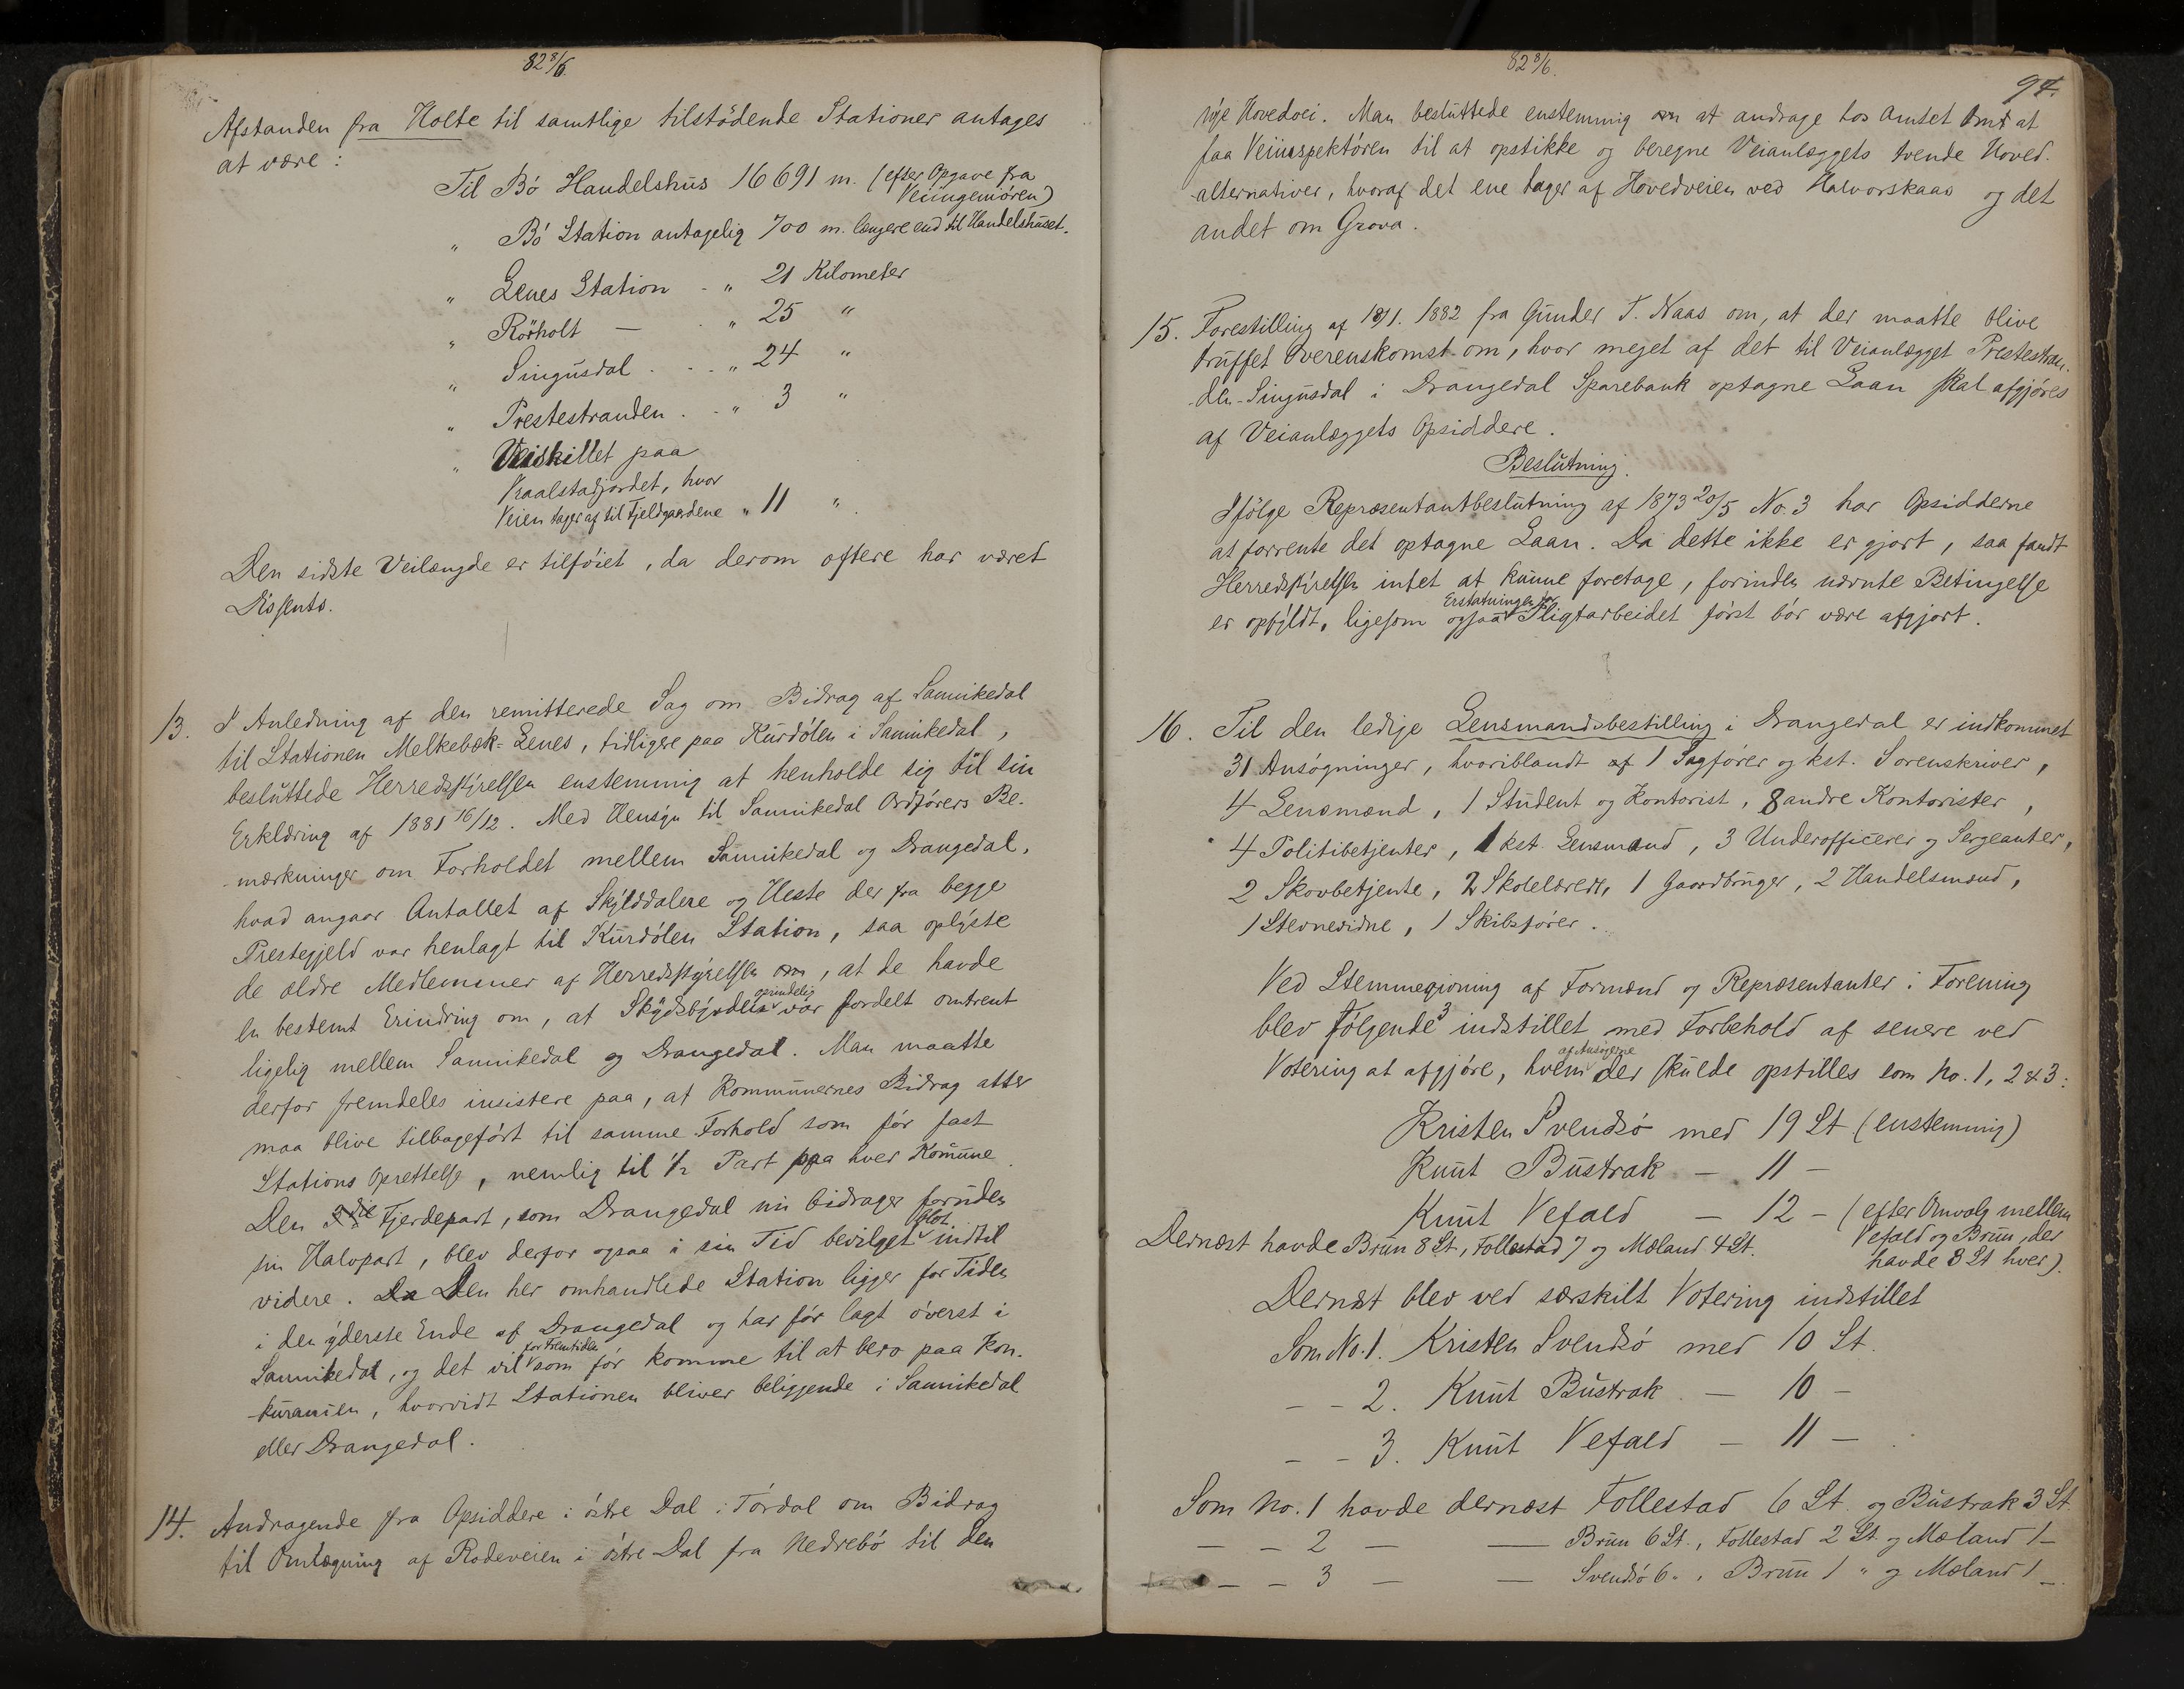 82 8/6.
Afstanden fra Holte til samtlige tilstödende Stationer antages
at være :
Til Bö Handelshus 16 691 m. (efter Opgave fra
Veiingeniören)
" Bö Station antagelig 700 m. længere end til Handelshuset.
" Lenes Station - " 21 Kilometer
" Rörholt — " 25 "
" Singusdal . - - " 24 "
" Prestestranden . - " 3 "
" Veiskillet paa
Kraalstadjordet, hvor
Veien tager af til Fjeldgaardene " 11 " .
Den sidste Veilængde er tilföiet, da derom oftere har været
Dissents.
13. I Anledning af den remitterede Sag om Bidrag af Sannikedal
til Stationen Melkebæk=Lenes, tidligere paa Kurdölen i Sannikedal,
besluttede Herredsstyrelsen enstemmig at henholde sig til sin
Erklæring af 1881 16/12. Med Hensyn til Sannikedal Ordförers Be-
mærkninger om Forholdet mellem Sannikedal og Drangedal,
hvad angaar Antallet af Skylddalere og Heste der fra begge
Prestegjeld var henlagt til Kurdölen Station, saa oplyste
de ældre Medlemmer af Herredsstyrelsen om, at de havde
en bestemt Erindring om, at Skydsbyrden oprindelig var fordelt omtrent
ligelig mellem Sannikedal og Drangedal. Man maatte
derfor fremdeles insistere paa, at Kommunernes Bidrag atter
maa blive tilbageført til samme Forhold som för fast
Stations Oprettelse, nemlig til 1/2 Part paa hver Komune.
Den Fjerdepart, som Drangedal nu bidrager foruden
sin Halvpart, blev derfor ogsaa i sin Tid bevilget blot indtil
videre. Da Den her omhandlede Station ligger for Tiden
i den yderste Ende af Drangedal og har för lagt överst i
Sannikedal, og det vil for Fremtiden som för komme til at bero paa Kon-
kurancen, hvorvidt Stationen bliver beliggende i Sannikedal
eller Drangedal.
14. Andragende fra Opsiddere i östre Dal i Tördal om Bidrag
til Omlægning af Rodeveien i östre Dal fra Nedrebö til den
82 8/6.
97.
nye Hovedvei. Man besluttede enstemmig om at andrage hos Amtet Omt at
faa Veiinspektören til at opstikke og beregne Veianlæggets tvende Hoved-
alternativer, hvoraf det ene tager af Hovedveien ved Halvorskaas og det
andet om Grova.
15. Forestilling af 1882 fra Gunder T. Naas om, at der maatte blive
truffet Overenskomst om, hvor meget af det til Veianlægget Prestestran-
den-Singusdal i Drangedal Sparebank optagne Laan skal afgjöres
af Veianlæggets Opsiddere.
Beslutning.
Ifölge Repræsentantbeslutning af 1873 20/5 No. 3 har Opsidderne
at forrente det optagne Laan. Da dette ikke er gjort, saa fandt
Herredsstyrelsen intet at kunne foretage, forinden nævnte Betingelse
er opfyldt, ligesom ogsaa Erstatningen for Pligtarbeidet först bör være afgjort.
16. Til den ledige Lensmandsbestilling i Drangedal er indkommet
31 Ansögninger, hvoriblandt af 1 Sagförer og kst. Sorenskriver,
4 Lensmænd, 1 Student og Kontorist, 8 andre Kontorister,
4 Politibetjenter, 1 kst. Lensmand, 3 Underofficerer og Sergeanter,
2 Skovbetjente, 2 Skolelærere, 1 Gaardbruger, 2 Handelsmænd,
1 Stevnevidne, 1 Skibsförer.
Ved Stemmegivning af Formænd og Repræsentanter i Forening
blev fölgende 3 indstillet med Forbehold af senere ved
Votering at afgjöre, hvem af Ansögerne der skulde opstilles som No. 1, 2 & 3:
Kristen Svendsö med 19 St (enstemmig)
Knut Bustrak — 11 —
Knut Vefald — 12 — (efter Omvalg mellem
Vefald og Brun, der
havde 8 St hver).
Dernæst havde Brun 8 St, Follestad 7 og Mæland 4 St.
Dernæst blev ved særskilt Votering indstillet
Som No. 1. Kristen Svendsö med 10 St.
— - 2. Knut Bustrak — 10 —
— - 3. Knut Vefald — 11 —
Som No. 1 havde dernæst Follestad 6 St. og Bustrak 3 St.
— - 2 — — Brun 6 St., Follestad 2 St. og Mæland 1 —
— - 3 — — Svendsö 6 ", Brun 1 " og Mæland 1 —.